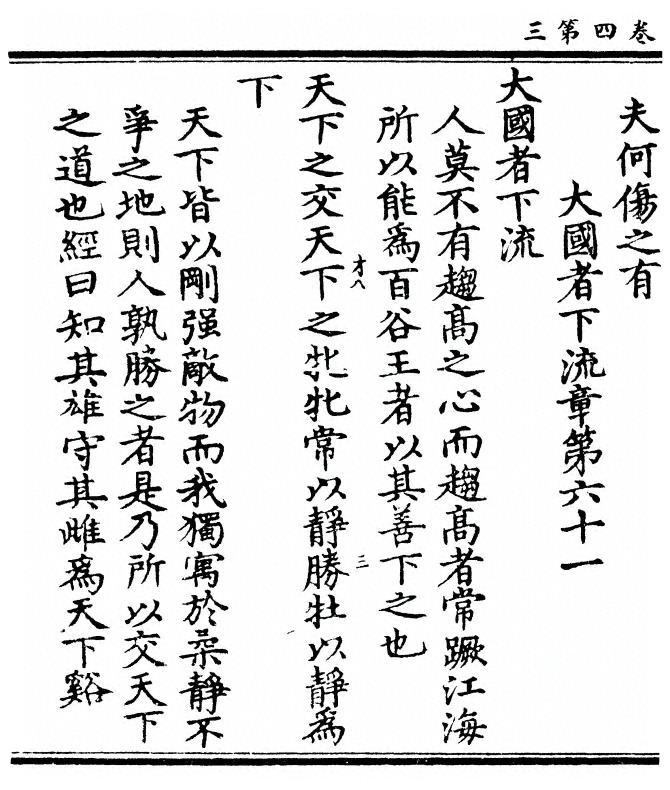 卷四第三
夫何傷之有
大國者下流章第六十一
大國者下流
人莫不有趨髙之心而趨髙者常蹶江海
所以能爲百谷王者以其善下之也
才八
三
天下之交天下之牝牝常以靜勝牡以靜爲
下
天下皆以剛强敵物而我獨寓於柔靜不
爭之地則人孰勝之者是乃所以交天下
之道也經曰知其雄守其雌爲天下谿